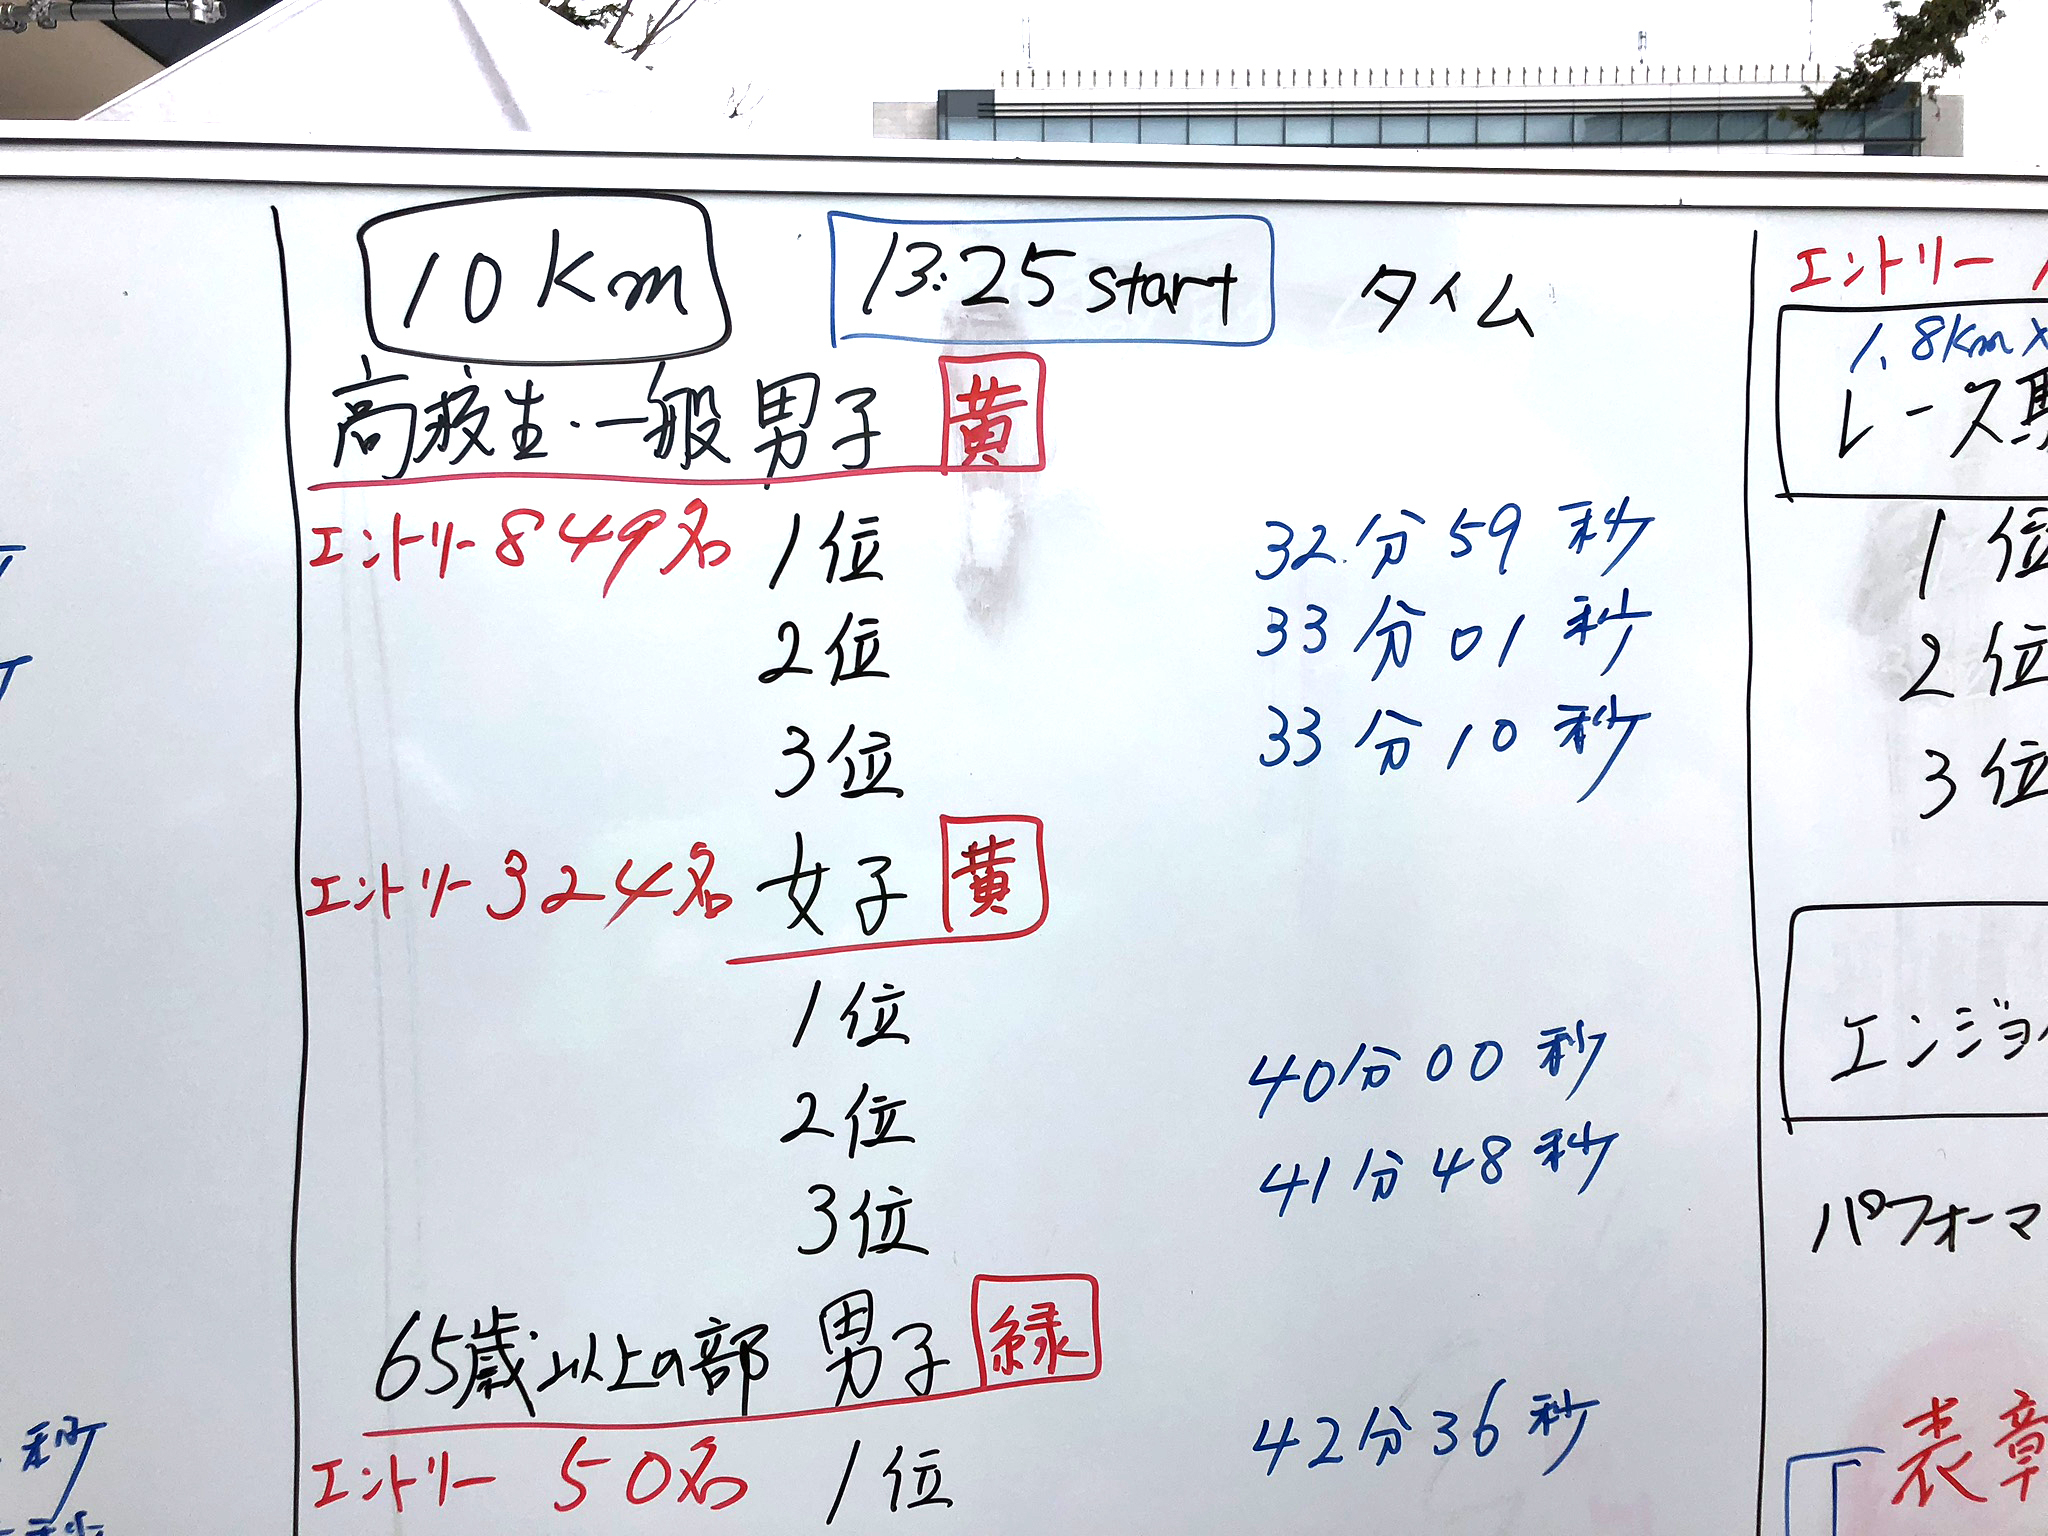 10Km 13:25 start タイム
高校生・一般男子 黄
エントリー849名 1位 32分59秒
2位 33分01秒
3位 33分10秒
エントリー324名 女子 黄
1位 40分00秒
2位 41分48秒
3位
65歳以上の部 男子 緑
エントリー 50名 1位 42分36秒
秒
エントリー
1.8Km×
レース
1位
2位
3位
エンジョ
パフォーマ
表章